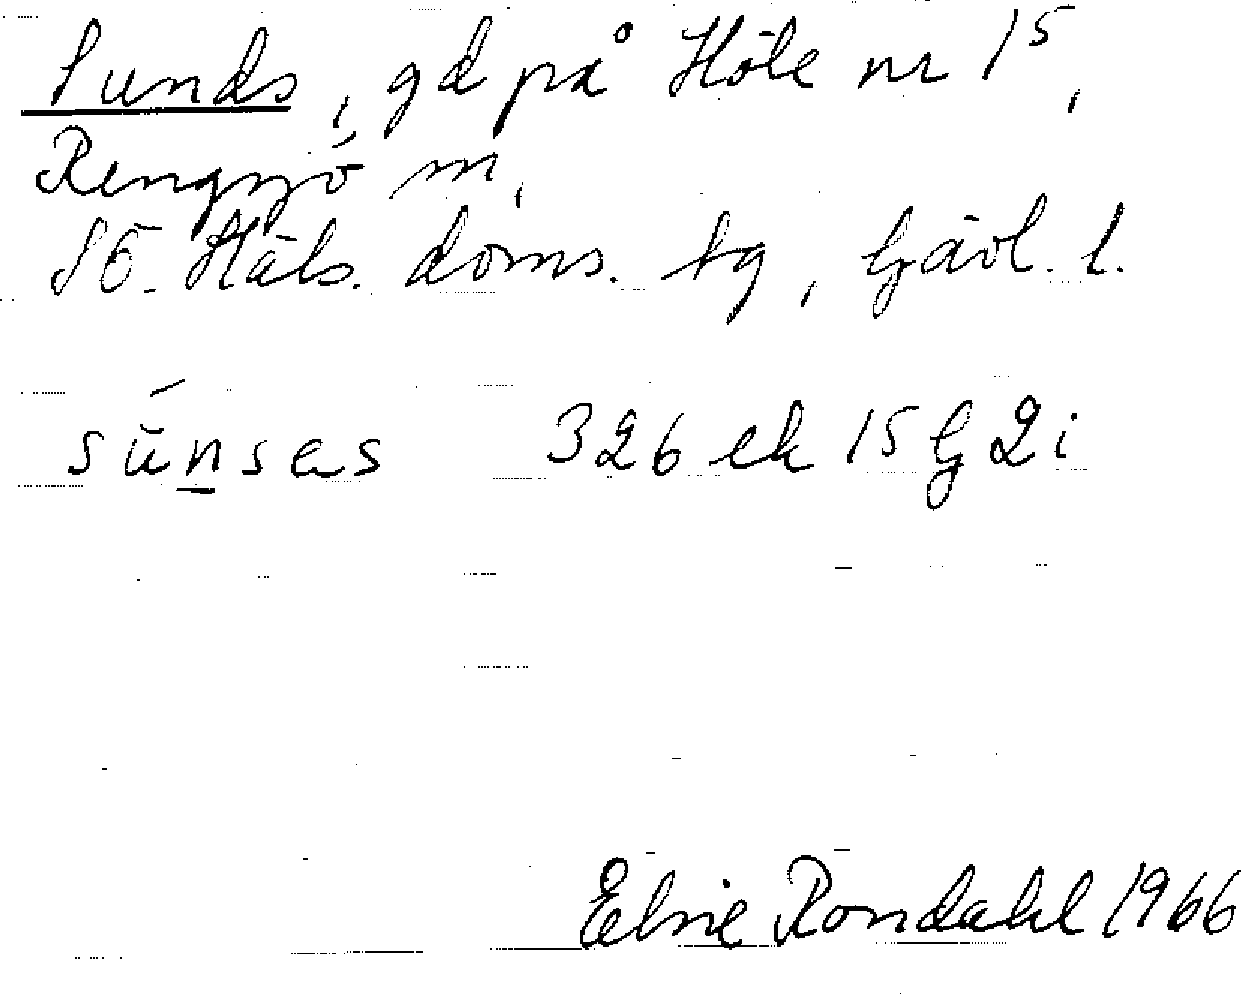 Sunds, gd på Höle nr 1⁵,
Rengsjö sn,
Sö. Häls. doms. tg, Gävl. l.
súnsas 326 ek 15 G 2 i
Elsie Rondahl 1966